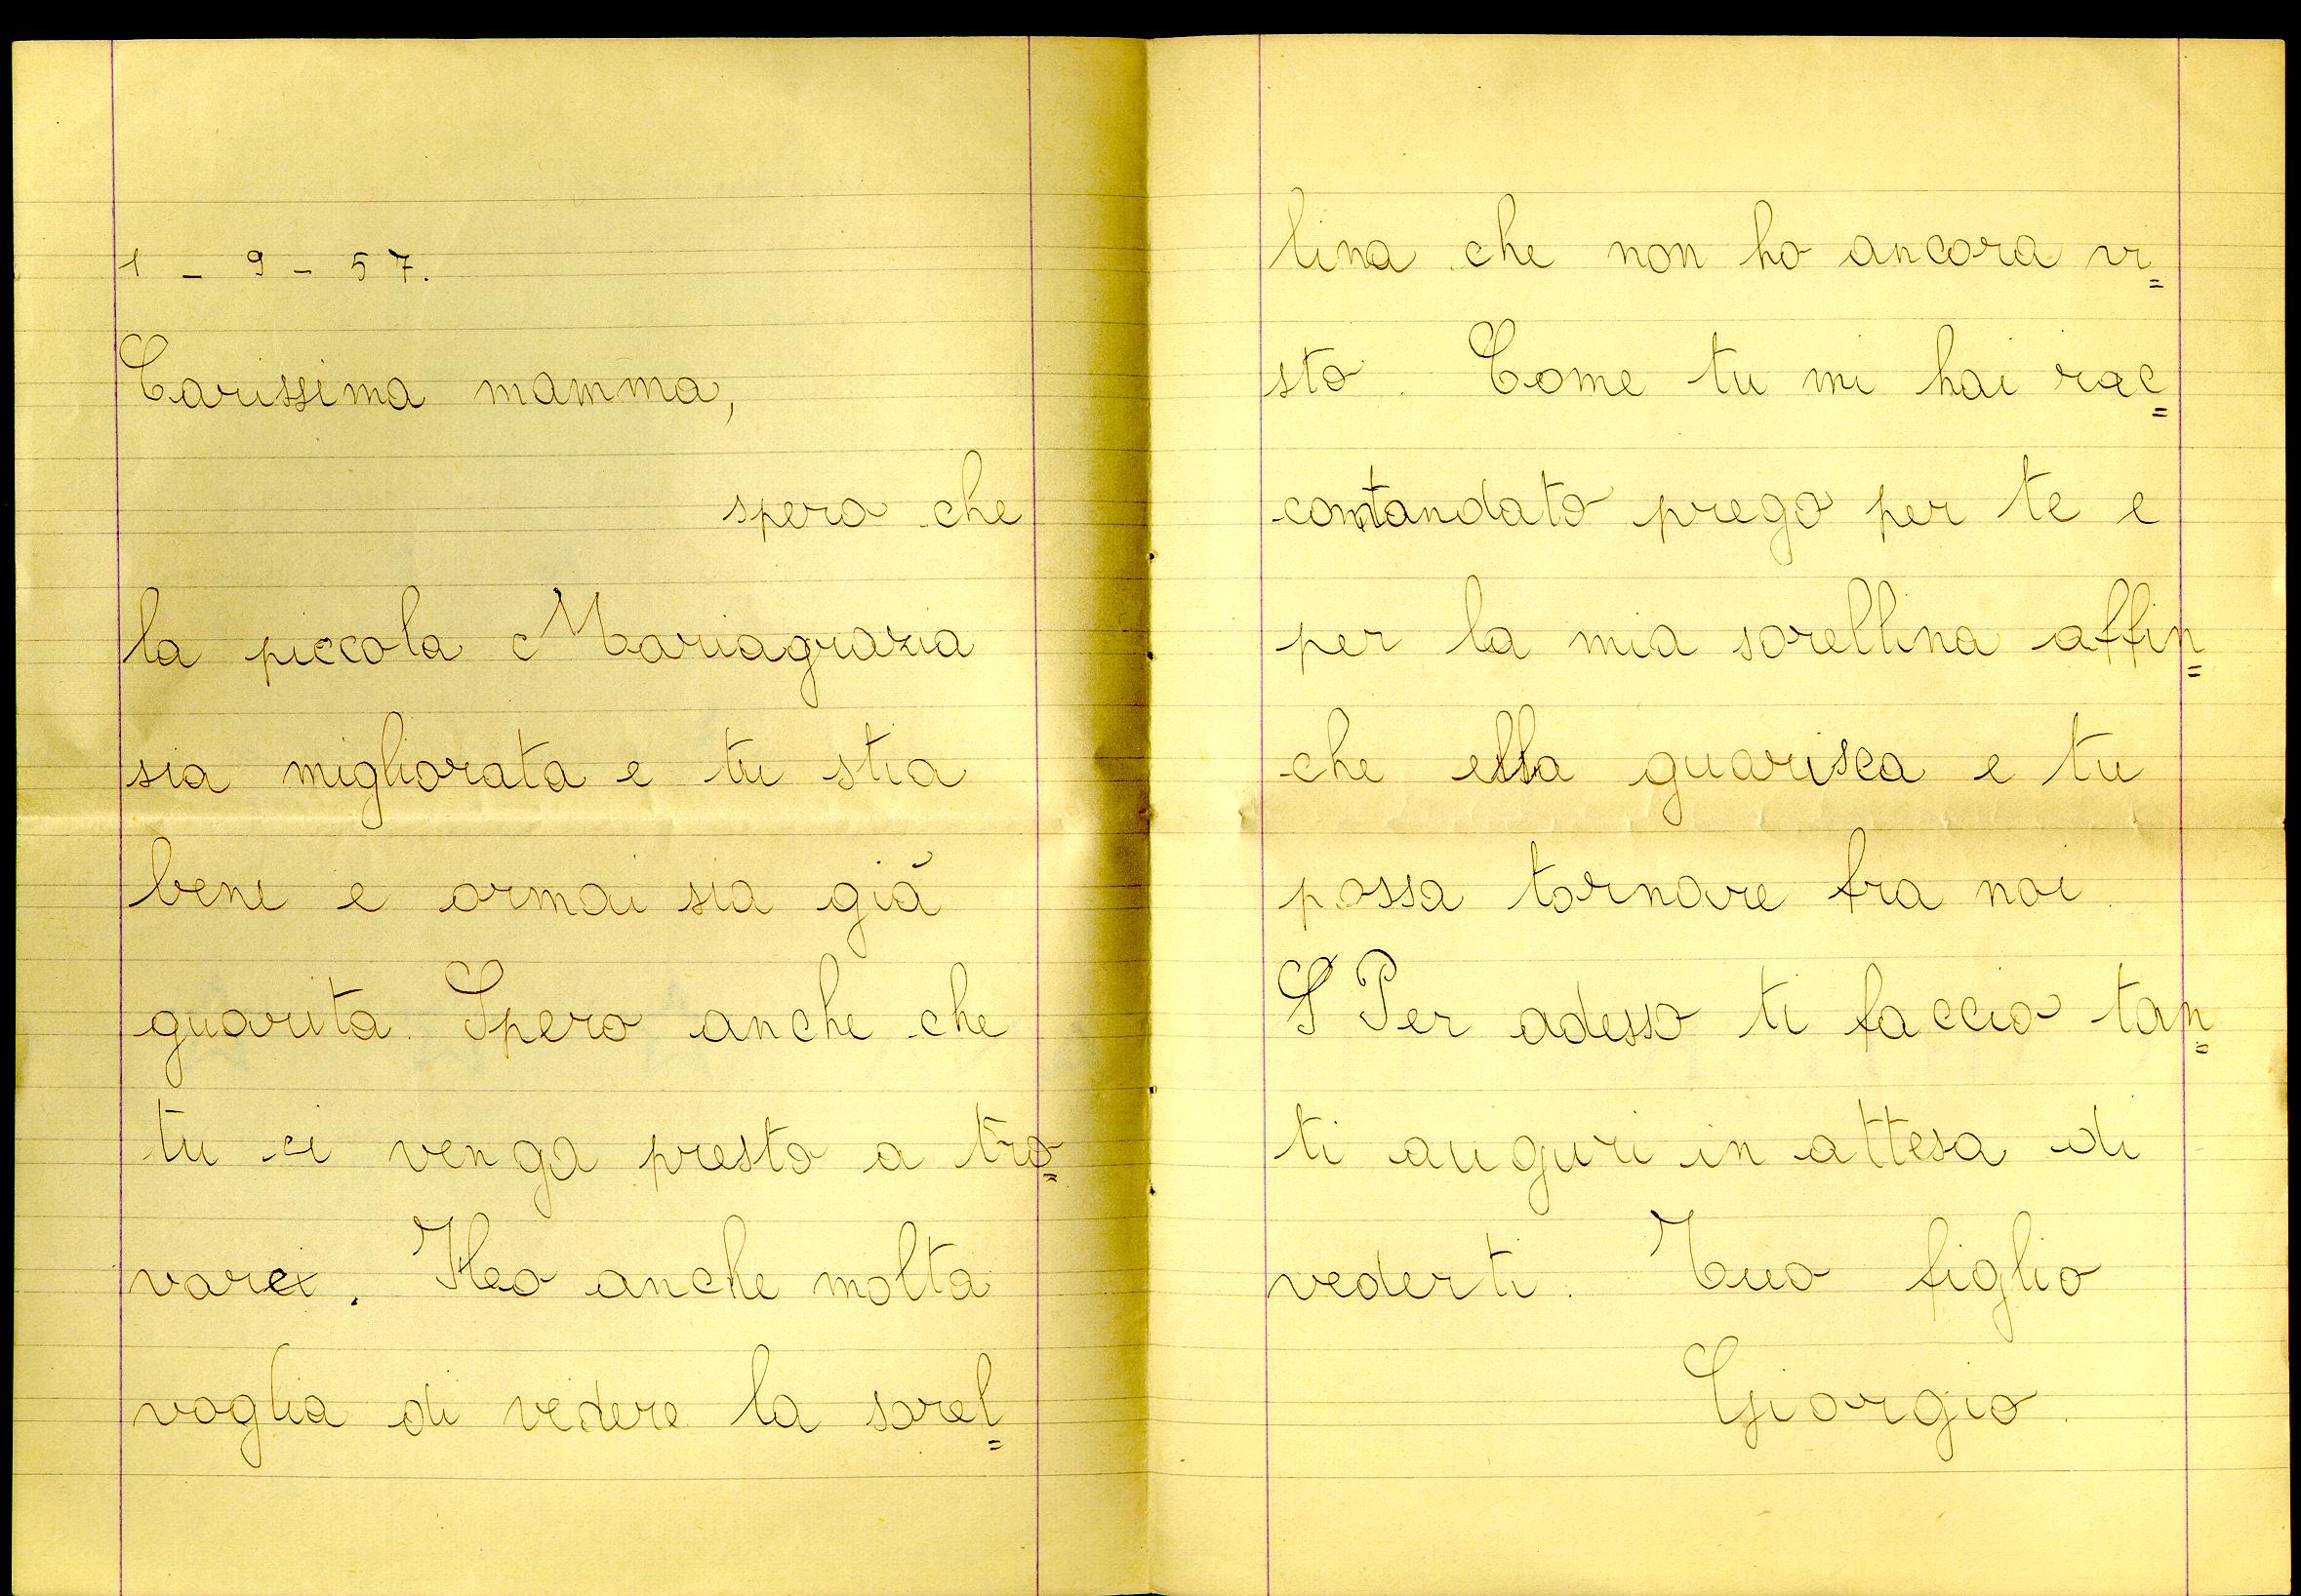 1 - 9 - 57.
Carissima mamma,
spero che
la piccola Mariagrazia
sia migliorata e tu stia
bene e ormai sia già
guarita. Spero anche che
tu ci venga presto a tro=
varci. Ho anche molta
voglia di vedere la sorel=
lina che non ho ancora vi=
sto. Come tu mi hai rac=
prego per te e
per la mia sorellina affin=
che ella guarisca e tu
possa tornare fra noi.
S Per adesso ti faccio tan=
ti auguri in attesa di
vederti. Tuo figlio
Giorgio.